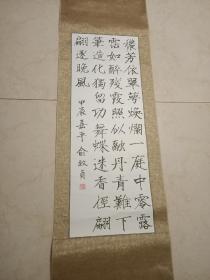 穠芳依翠萼煥爛一庭中零露
霑如醉殘霞照似融丹青難下
筆造化獨留功舞蝶迷香徑翩
翩逐晚風
甲辰嘉平俞敏